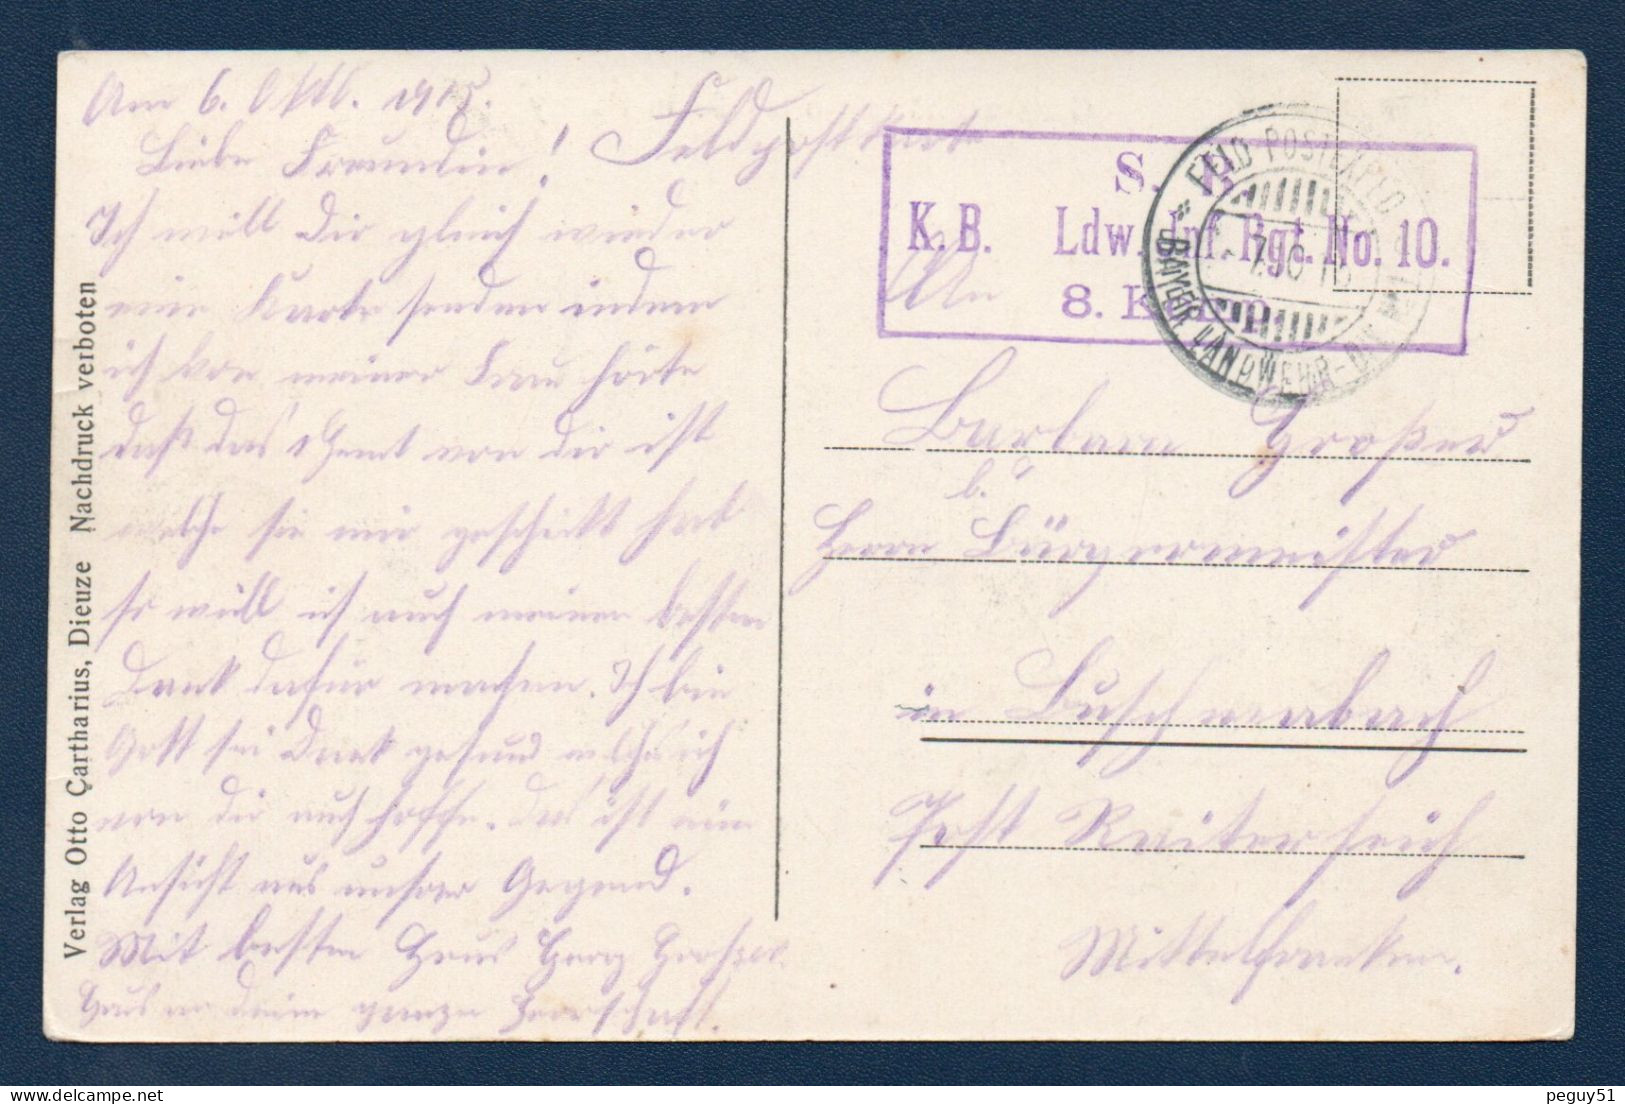 Am 6. Okt. 1915.
Liebe Freundin! Feldpostkarte
Ich will Dir gleich wieder
eine Karte senden indem
ich von meiner Frau hörte
daß das von dir ist
welche sie mir geschickt hat
so will ich auch meinen besten
Dank dafür machen. Ich bin
Gott sei Dank gesund welches ich
von dir auch hoffe. Das ist eine
Ansicht aus unsrer Gegend.
Mit besten Grus Georg Großer
Grus an deine ganze Herrschaft.
Verlag Otto Cartharius, Dieuze Nachdruck verboten
S. B.
K. B. Ldw. Inf. Rgt. No. 10.
8. Komp.
FELD POSTEXPED.
BAYER. LANDWEHR-DIV.
An
Barbara Großer
b.
Herrn Bürgermeister
in
Post
Mittelfranken.
peguy51